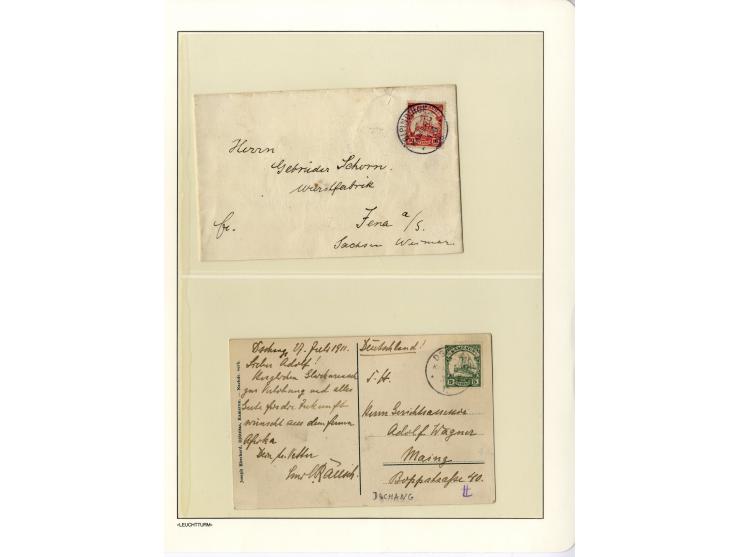 Herrn
Gebrüder Schorn.
Wurstfabrik
Jena a/S.
fr.
Sachsen Weimar
Dschang 27. Juli 1911.
Deutschland!
Lieber Adolf!
S. H.
Herzlichen Glückwunsch
zur Verlobung und alles
Gute für die Zukunft
wünscht aus dem fernen
Afrika
Dein
Vetter
Rausch.
Herrn Gerichtsassessor
Adolf Wagner
Mainz
Boppstrasse 40.
DSCHANG
KAMERUN
»LEUCHTTURM«